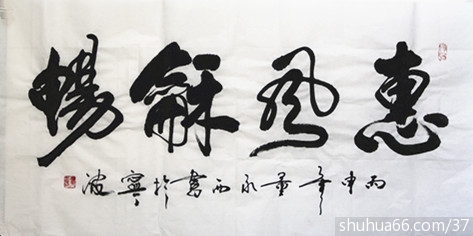 惠風龢暢
丙申年墨永西書於寧波
shuhua66.com/37